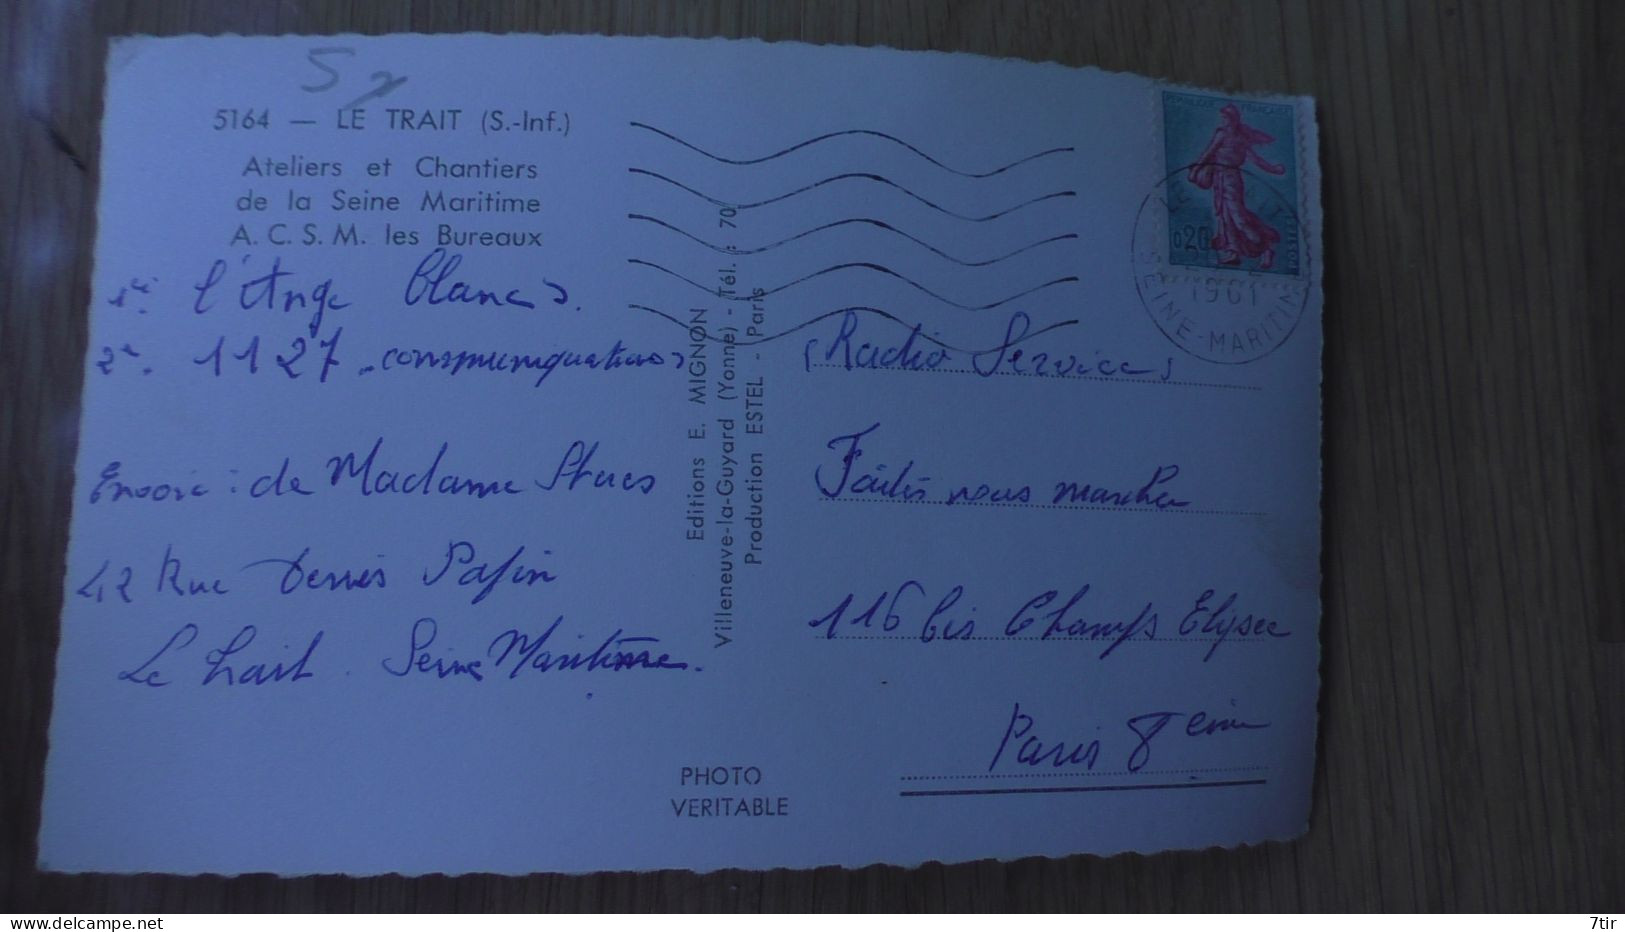 5164 — LE TRAIT (S.-Inf.)
Ateliers et Chantiers
de la Seine Maritime
A. C. S. M. les Bureaux
l'Ange blanc
2e. 1127 communications
Envoie : de Madame
42 Rue Denis Papin
Le Trait. Seine Maritime.
Editions E. MIGNON
Villeneuve-la-Guyard (Yonne) - Tél. : 70
Production ESTEL - Paris
PHOTO
VERITABLE
REPUBLIQUE FRANÇAISE
0,20
POSTES
1961
SEINE-MARITIME
Radio Services
Faites nous marcher
116 bis Champs Elysee
Paris 8eme
delcampe.net
7tir